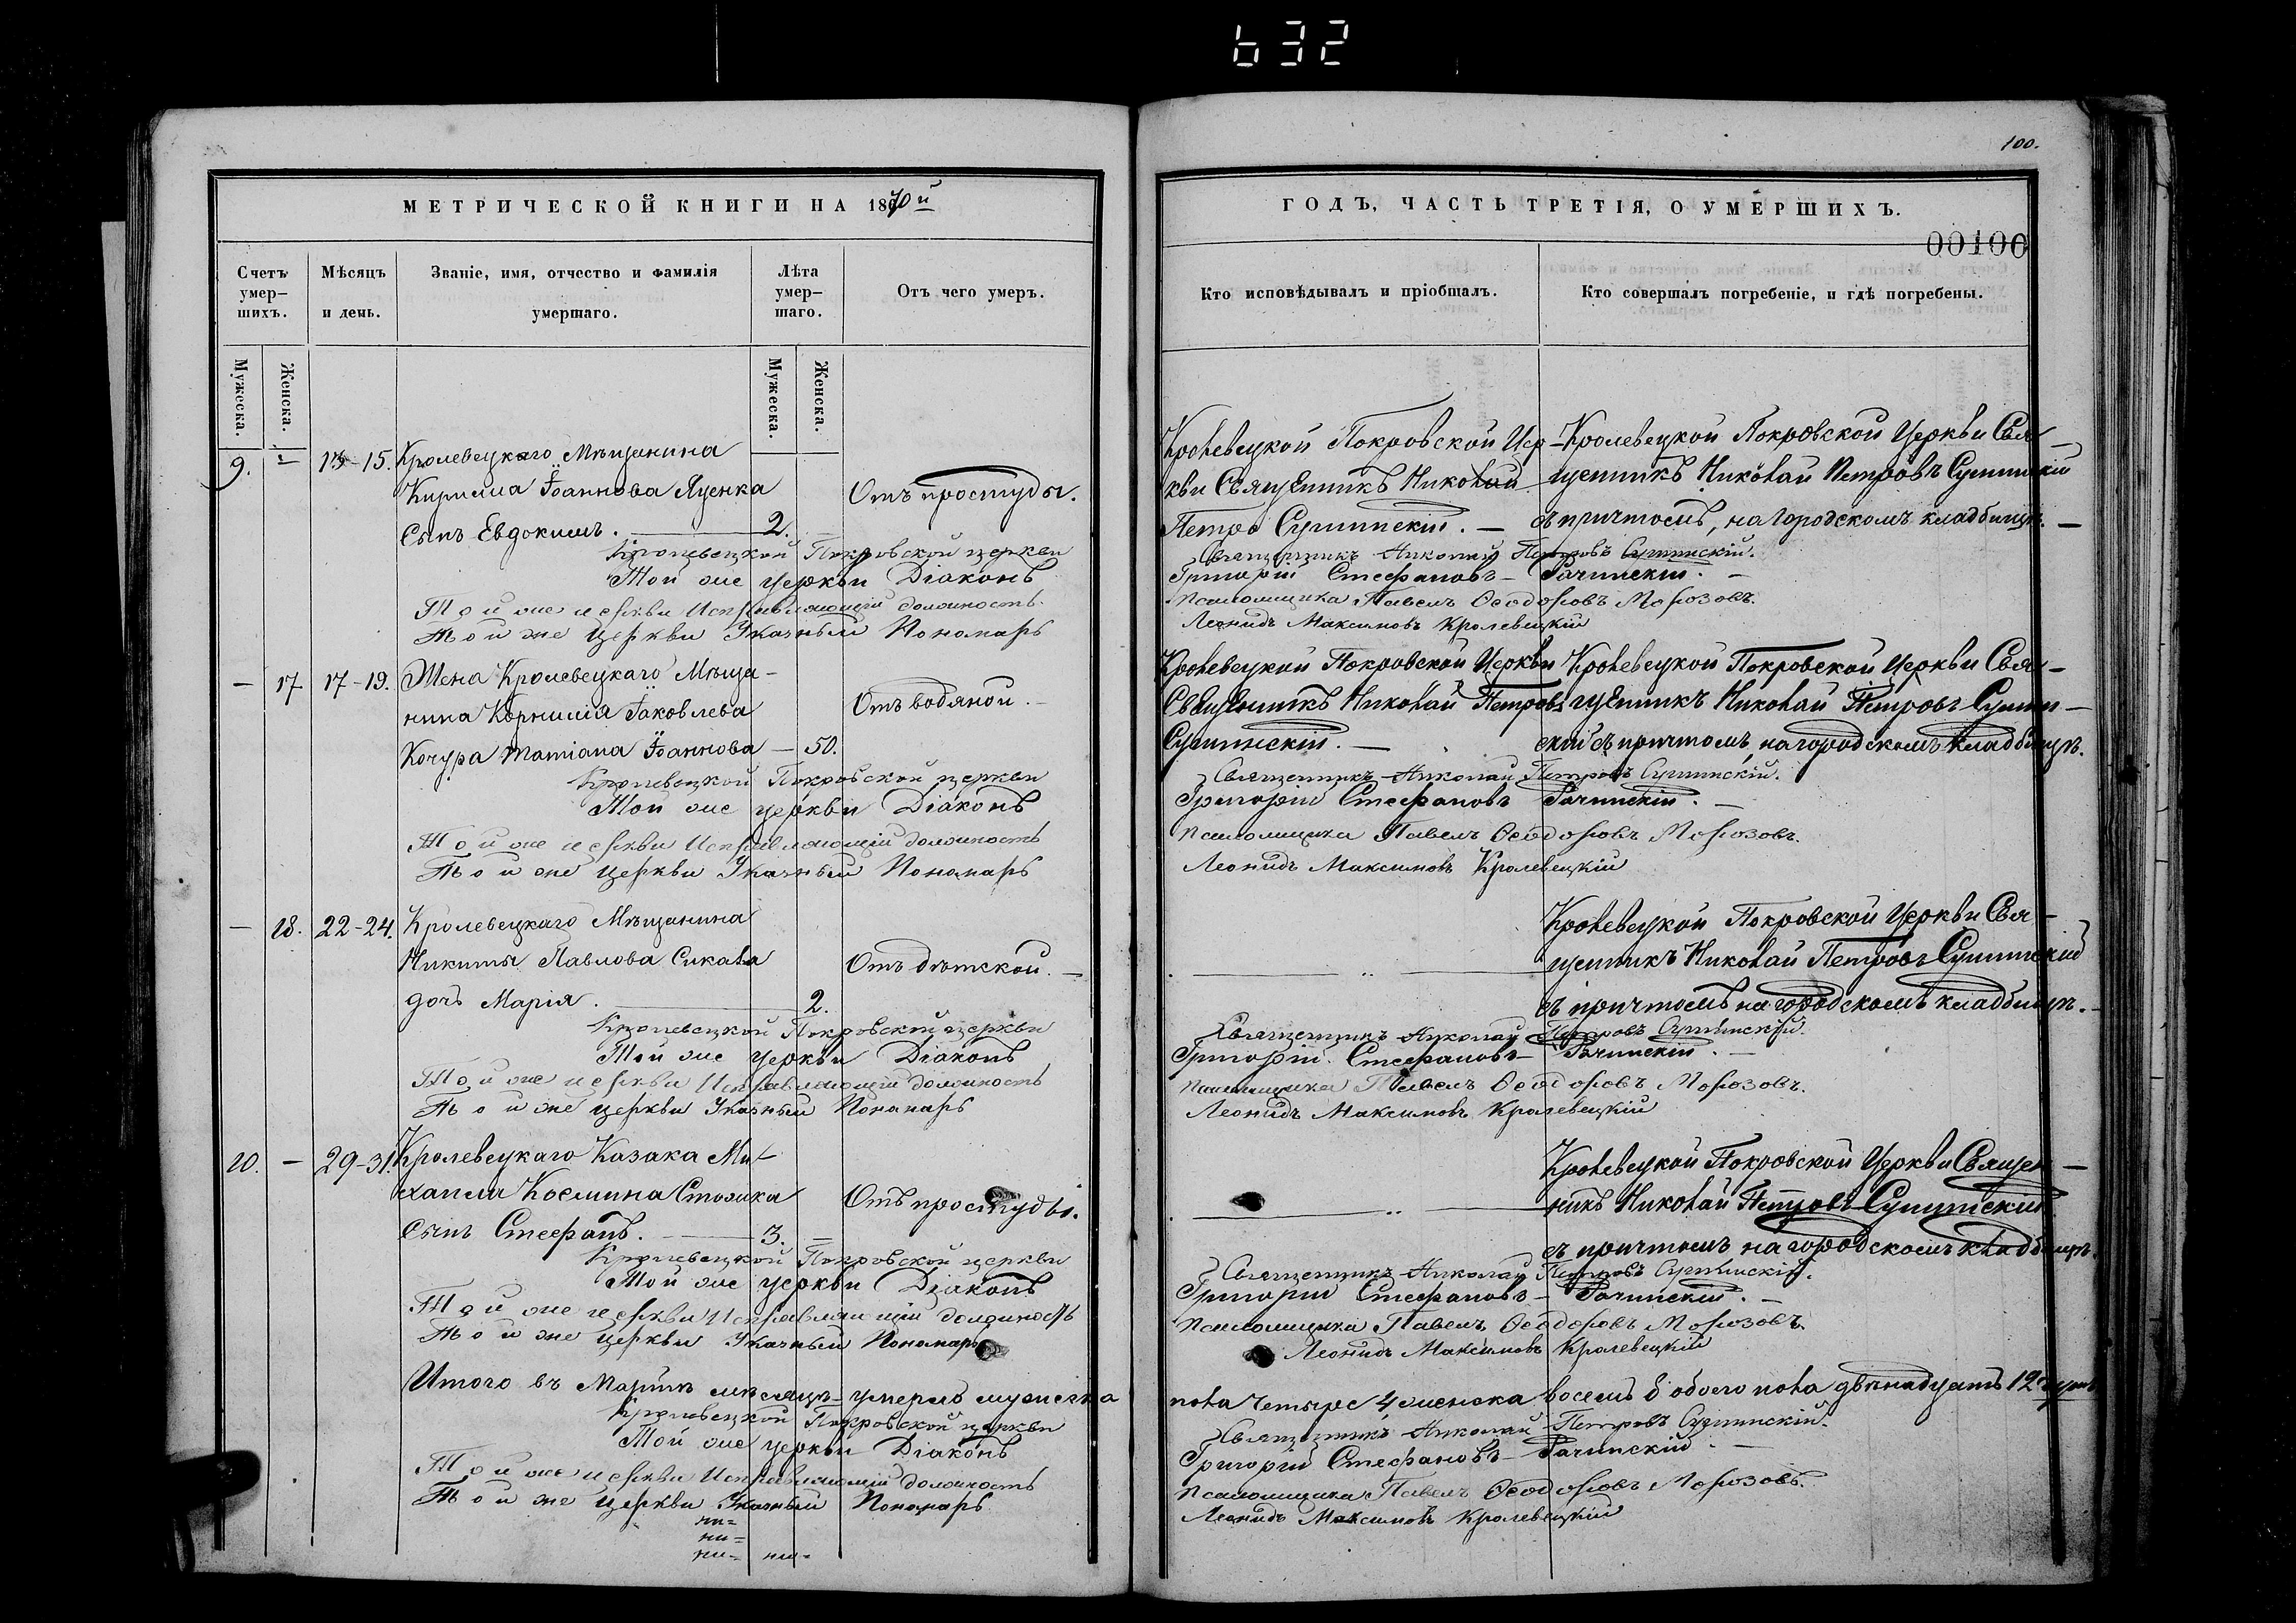 632
100.
МЕТРИЧЕСКОЙ КНИГИ НА 1870й
ГОДЪ, ЧАСТЬ ТРЕТІЯ, О УМЕРШИХЪ.
00100
Счетъ умер-шихъ.
Мѣсяцъ и день.
Званіе, имя, отчество и фамилія умершаго.
Лѣта умер-шаго.
Отъ чего умеръ.
Кто исповѣдывалъ и пріобщалъ.
Кто совершалъ погребеніе, и гдѣ погребены.
Мужеска.
Женска.
Мужеска.
Женска.
9. - 13-15. Кролевецкаго Мѣщанина
Кирилла Іоаннова Яценка
Сынъ Евдокимъ. 2.
Отъ простуды.
Кролевецкой Покровской Цер-
кви Священникъ Николай
Петро Сулимскій. —
Кролевецкой Покровской Церкви Свя-
щенникъ Николай Петровъ
съ причтомъ, на городскомъ кладбищѣ. —
Кролевецкой Покровской церкви Священникъ Николай Петровъ
Той же церкви Діаконъ Григорій Стефановъ Рачинскій. —
Той же церкви Исправляющій должность псаломщика Павелъ Ѳеодоровъ Морозовъ.
Той же церкви Указный Пономарь Леонидъ Максимовъ Кролевецкій
— 17 17-19. Жена Кролевецкаго Мѣща-
нина Корнилія Іаковлева
Кочура Татіана Іоаннова — 50.
Отъ водяной. —
Кролевецкой Покровской Церкви
Священникъ Николай Петровъ
Кролевецкой Покровской Церкви Свя-
щенникъ Николай Петровъ
скій съ причтомъ, на городскомъ кладбищѣ.
Кролевецкой Покровской церкви Священникъ Николай Петровъ
Той же церкви Діаконъ Григорій Стефановъ Рачинскій. —
Той же церкви Исправляющій должность псаломщика Павелъ Ѳеодоровъ Морозовъ.
Той же церкви Указный Пономарь Леонидъ Максимовъ Кролевецкій
— 18. 22-24. Кролевецкаго Мѣщанина
Никиты Павлова
дочь Марія. 2.
Отъ дѣтской. —
Кролевецкой Покровской Церкви Свя-
щенникъ Николай Петровъ
съ причтомъ на городскомъ кладбищѣ. —
Кролевецкой Покровской церкви Священникъ Николай Петровъ
Той же церкви Діаконъ Григорій Стефановъ Рачинскій. —
Той же церкви Исправляющій должность псаломщика Павелъ Ѳеодоровъ Морозовъ.
Той же церкви Указный Пономарь Леонидъ Максимовъ Кролевецкій
10. — 29-31. Кролевецкаго Казака Ми-
хаила Космина
Сынъ Стефанъ. 3. —
Отъ простуды.
Кролевецкой Покровской Церкви Священ-
никъ Николай Петровъ
съ причтомъ на городскомъ кладбищѣ.
Кролевецкой Покровской церкви Священникъ Николай Петровъ
Той же церкви Діаконъ Григорій Стефановъ Рачинскій. —
Той же церкви Исправляющій должность псаломщика Павелъ Ѳеодоровъ Морозовъ.
Той же церкви Указный Пономарь Леонидъ Максимовъ Кролевецкій
Итого въ Мартѣ мѣсяцѣ умерло мужеска пола четыре 4 женска восемь 8 обоего пола двѣнадцать 12
Кролевецкой Покровской церкви Священникъ Николай Петровъ
Той же церкви Діаконъ Григорій Стефановъ Рачинскій. —
Той же церкви Исправляющій должность псаломщика Павелъ Ѳеодоровъ Морозовъ.
Той же церкви Указный Пономарь Леонидъ Максимовъ Кролевецкій